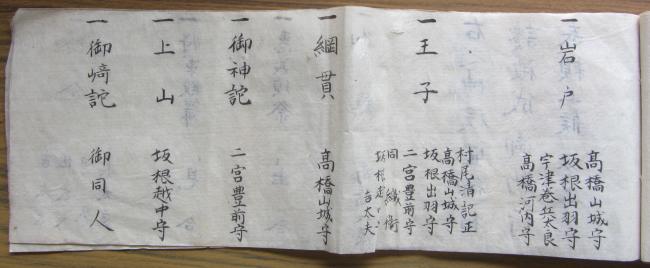 一岩戸
高橋山城守
坂根出羽守
宇津巻兵太良
高橋河内守
一王子
村尾清記正
高橋山城守
坂根出羽守
二宮豊前守
同織衛
坂根
右太夫
一綱貫
高橋山城守
一御神託
二宮豊前守
一上山
坂根越中守
一御﨑託
御同人